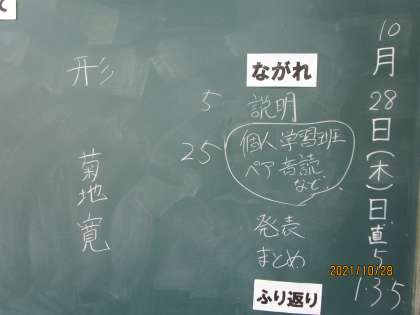 10月28日(木)日直5
1.35.
ながれ
5 説明
25 個人学習班
ペア音読
など...
発表
まとめ
ふり返り
形
菊地寛
2021/10/28